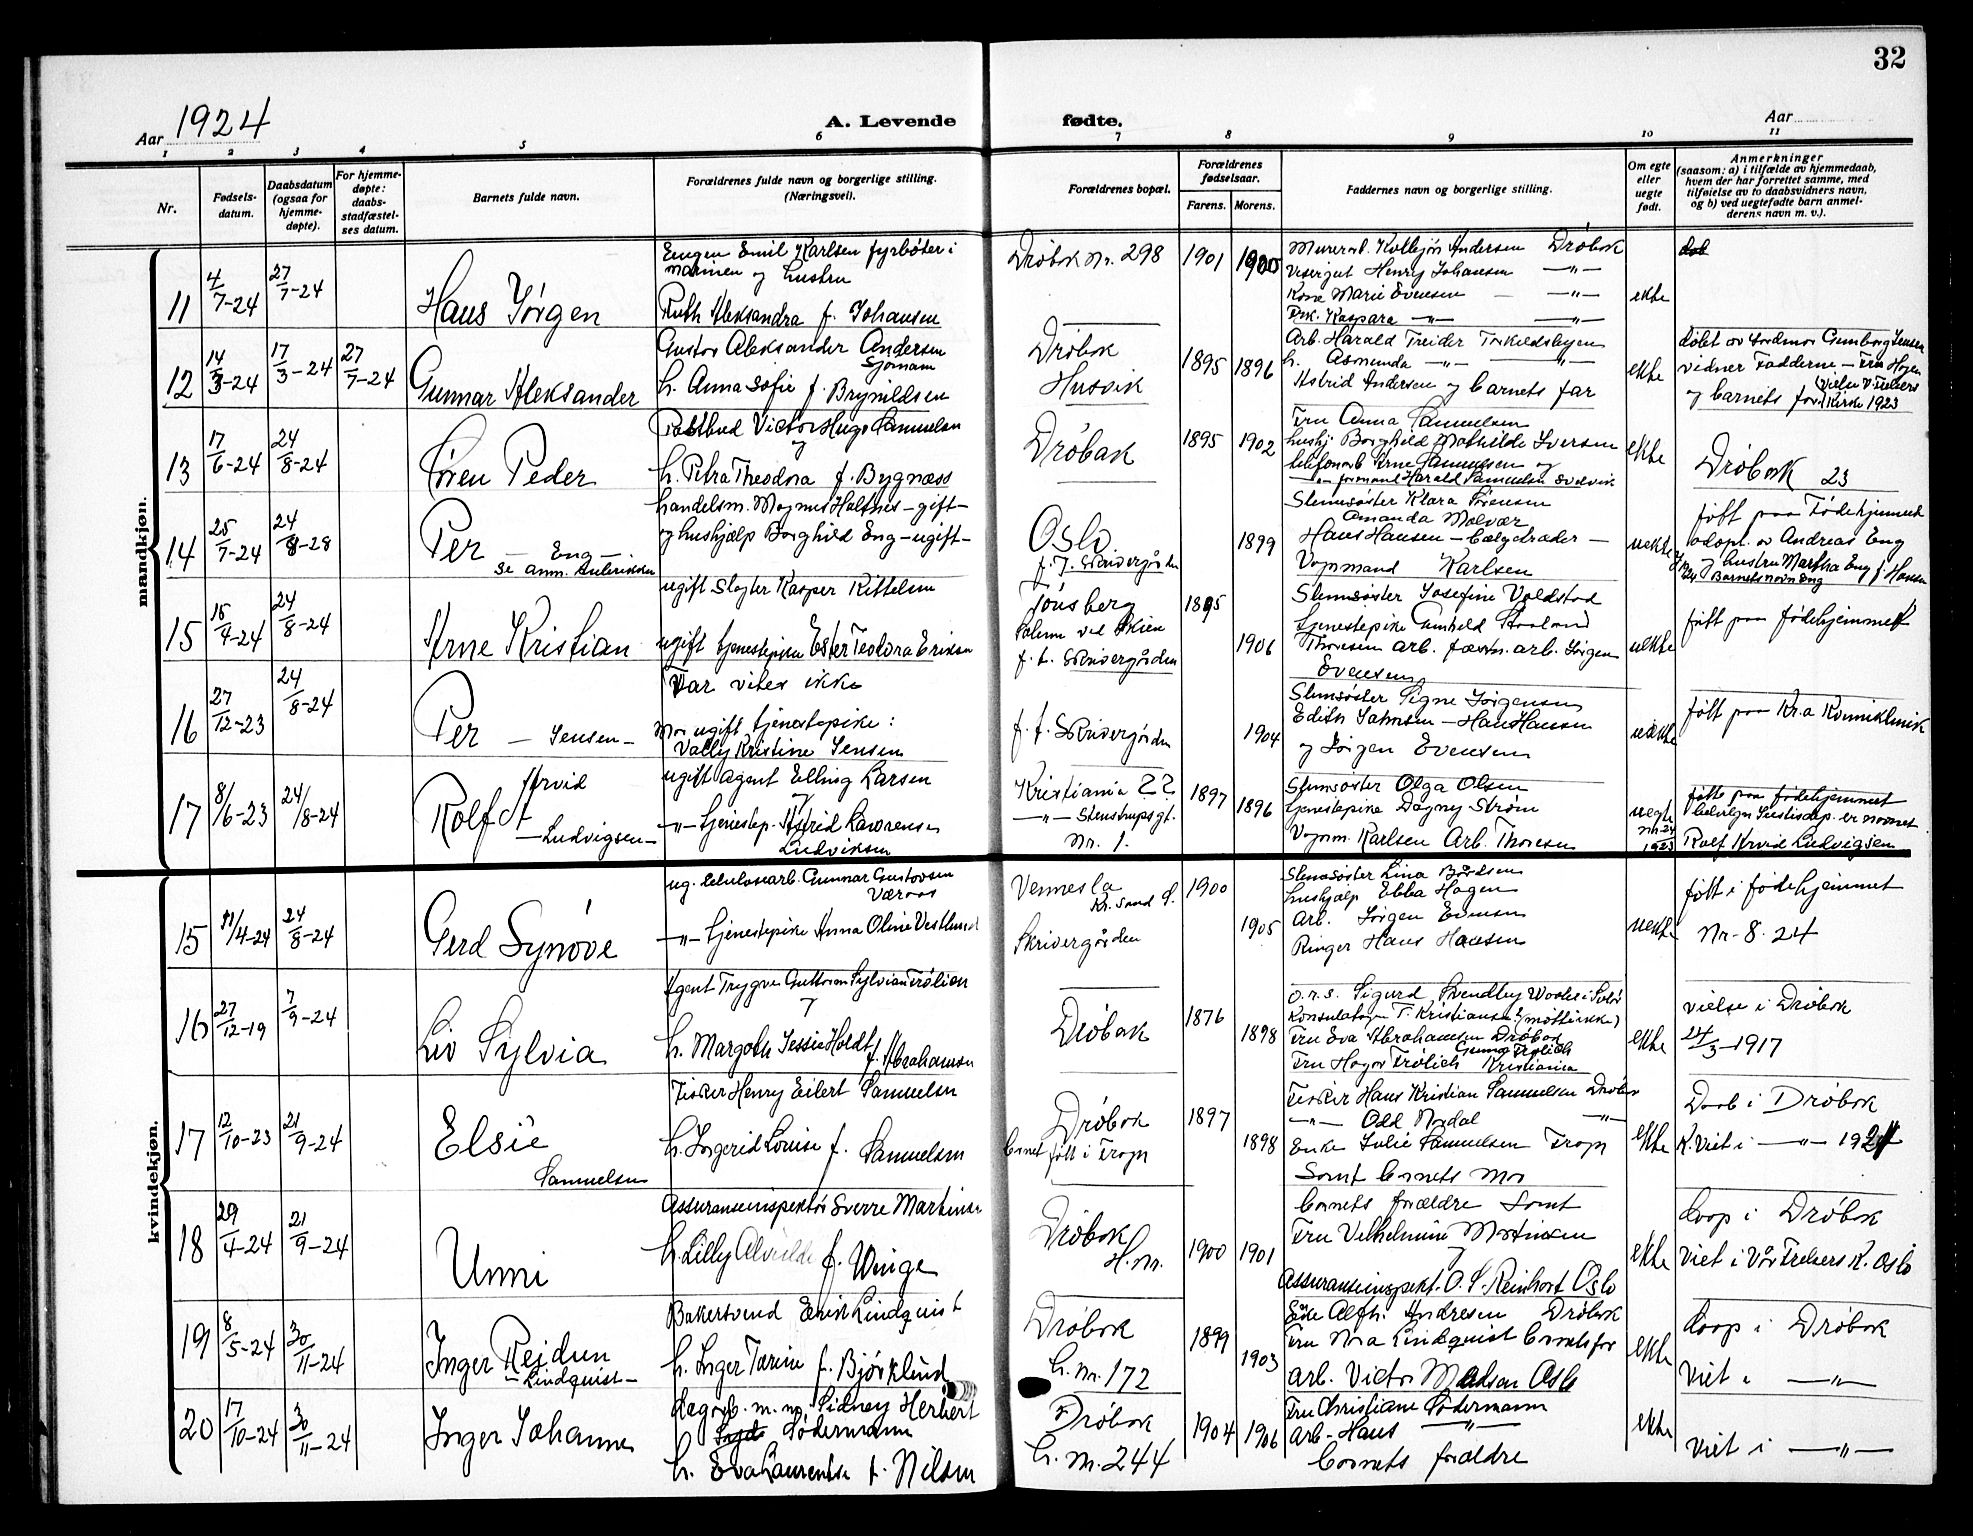 32
Aar 1924
A. Levende fødte.
Aar
1 2 3 4 5 6 7 8 9 10 11
Nr.
Fødsels-datum.
Daabsdatum (ogsaa for hjemme-døpte).
For hjemme-døpte: daabs-stadfæstel-ses datum.
Barnets fulde navn.
Forældrenes fulde navn og borgerlige stilling. (Næringsvei).
Forældrenes bopæl.
Forældrenes fødselsaar.
Farens. Morens.
Faddernes navn og borgerlige stilling.
Om egte eller uegte født.
Anmerkninger
(saasom: a) i tilfælde av hjemmedaab, hvem der har forrettet samme, med tilføielse av to daabsvidners navn, og b) ved uegtefødte barn anmel-derens navn m. v.).
mandkjøn.
11 4/7-24 27/7-24
Hans Jørgen
Eugen Emil Karlsen fyrbøter i
marinen og hustru
Ruth Aleksandra f. Johansen
Drøbak Nr. 298 1901 1900
Andersen Drøbak
Visergut Henry Johansen —"—
Kone Marie Evensen —"—
Frk. Kaspara —"— —"—
ekte
12 14/3-24 17/3-24 27/7-24
Gunnar Aleksander
Gustav Aleksander Andersen
Sjømann
h. Anna Sofie f. Brynildsen
Drøbak
Husvik
1895 1896
Arb. Harald Treider
h. Asmunda —"— —"—
Astrid Andersen og barnets far
ekte
døbt av Jordmor Gunborg Jensen
vidner Fadderne — Fru Hagen
og barnets far
Kirke 1923
13 17/6-24 24/8-24
Søren Peder
Postbud Victor Hugo Samuelsen
og
h. Petra Theodora f. Bygnæss
Drøbak
1895 1902
Fru Anna Samuelsen
hushj Borghild Mathilde Iversen
telefonarb Arne Samuelsen og
—"— formand Harald Samuelsen Svelvik
ekte
Drøbak 23
14 25/7-24 24/8-28
Per — Eng —
handelsm. Magnus Halsnes — gift —
og hushjælp Borghild Eng — ugift —
Oslo
f. t. Skrivergården
1899
Slumsøster Klara Sørensen
Amanda Molvær
Hans Hansen — Bælgtræder —
Vognmand Karlsen
uekte
født paa Fødehjemmet
adopt. av Andreas Eng
og hustru Martha Eng f. Hansen
Barnets navn Eng
15 15/4-24 24/8-24
Arne Kristian
ugift Slagter Kasper Kittelsen
ugift tjenestepike Ester Teodora Eriksen
Tønsberg
Solum ved Skien
f. t. Skrivergården
1895 1906
Slumsøster Josefine Voldstad
tjenestepike
Thoresen arb. arb. Jørgen
Evensen
uekte
født paa fødehjemmet
16 27/12-23 24/8-24
Per — Jensen —
Far vites ikke
Mor ugift tjenestepike:
Vally Kristine Jensen
f. t. Skrivergården
1904
Slumsøster Signe Jørgensen
Edith Jahnsen — Hans Hansen
og Jørgen Evensen
uekte
født paa Kr.a Kvinneklinik
17 8/6-23 24/8-24
Arvid
Rolf
— Ludvigsen —
ugift agent Elling Larsen
og
—"— tjenestep. Astrid Lawrense
Ludviksen
Kristiania ??
—"— Stenstrupsgt.
Nr. 1.
1897 1896
Slumsøster Olga Olsen
tjenestepike Dagny Strøm
Vognm. Karlsen Arb. Thoresen
uegte
nr. 24
1923
født paa fødehjemmet
er navnet
Rolf Arvid Ludvigsen
kvindekjøn.
15 11/4-24 24/8-24
Gerd Synøve
ug. celulosearb. Gunnar Gustavsen
Væraas
—"— tjenestepike Anna Oline Vestlund
Vennesla
Kr.sand
Skrivergården
1900 1905
Slumsøster Lina Bårdsen
hushjælp Ebba Hagen
Arb. Jørgen Evensen
Ringer Hans Hansen
uekte
født i fødehjemmet
Nr. 8. 24
16 27/12-19 7/9-24
Liv Sylvia
Agent Trygve Guttorm Sylvian Frølian
og
h. Margoth Jessie Holdt
f. Abrahamsen
Drøbak
1876 1898
o.r.s. Sigurd
T. Kristiansen (møtt ikke)
Fru Eva Abrahamsen Drøbak
Fru Hagar Frølich Kristiania
ekte
vielse i Drøbak
24/3-1917
17 12/10-23 21/9-24
Elsie
Samuelsen
Fisker Henry Eilert Samuelsen
h. Ingerid Louise f. Samuelsen
Drøbak
barnet født i Frogn
1897 1898
Fisker Hans Kristian Samuelsen Drøbak
—"— Odd Nydal —"—
Enke Julie Samuelsen Frogn
Samt barnets mor
ekte
Daab i Drøbak
K. Viet i —"— 1921
18 29/4-24 21/9-24
Unni
Assuranseinspektør Sverre Martinsen
h. Lilly Alvilde f. Winge
Drøbak
H. nr.
1900 1901
barnets forældre samt
Fru Vilhelmine Martinsen
og
Assuranseinspekt. O. S. Reinhart Oslo
ekte
Daap i Drøbak
Viet i Vår Frelsers K. Oslo
19 8/5-24 30/11-24
Inger Reidun
— Lindquist —
Bakersvend Erik Lindquist
h. Inger Tarine f. Bjørklund
Drøbak
h. nr. 172
1899 1903
Andresen Drøbak
Fru Nora Lindquist barnets far
arb. Victor Madsen Oslo
ekte
Daap i Drøbak
Viet i —"—
20 17/10-24 30/11-24
Inger Johanne
Dagarb. m. m. Sidney Herbert
Södermann
h. Eva Laurentse f. Nilsen
Drøbak
h. nr. 244
1904 1906
Fru Christiane Södermann
arb. Hans —"—
barnets forældre
ekte
Viet i —"—